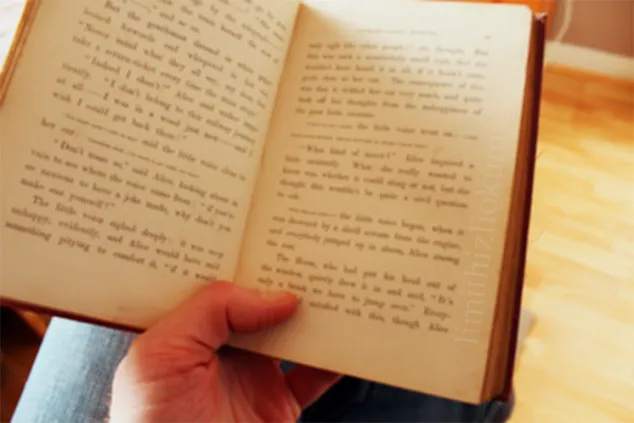 " and so on.
But the gentleman dressed in white paper
leaned forwards and whispered in her ear,
"Never mind what they all say, my dear, but
take a return-ticket every time the train stops."
"Indeed I shan't!" Alice said rather impa-
tiently. "I don't belong to this railway journey
at all—I was in a wood just now—and I
wish I could get back there!"
said the little voice close to
her ear:
"Don't tease so," said Alice, looking about in
vain to see where the voice came from; "if you're
so anxious to have a joke made, why don't you
make one yourself?"
The little voice sighed deeply: it was very
unhappy, evidently, and Alice would have said
something pitying to comfort it, "if it would
only sigh like other people!" she thought. But
this was such a wonderfully small sigh, that she
wouldn't have heard it at all, if it hadn't come
quite close to her ear. The consequence of this
was that it tickled her ear very much, and quite
took off her thoughts from the unhappiness of
the poor little creature.
the little voice went on
"What kind of insect?" Alice inquired a
little anxiously. What she really wanted to
know was, whether it could sting or not, but she
thought this wouldn't be quite a civil question
to ask.
the little voice began, when it
was drowned by a shrill scream from the engine,
and everybody jumped up in alarm, Alice among
the rest.
The Horse, who had put his head out of
the window, quietly drew it in and said, "It's
only a brook we have to jump over." Every-
satisfied with this, though Alice